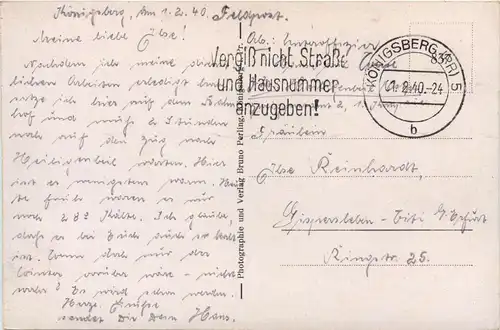 Königsberg, am 1.2.40.
Feldpost.
Meine liebe Ilse!
Abs.: Unteroffizier
Nachdem ich meine
lieben Arbeiten erledigt
sitze ich hier auf dem Bahn
hof und muß 2 Stunden
noch auf den Zug nach
Heiligenbeil warten. Hier
ist es wenigstens warm. Heu
te früh waren es nur
noch 28° Kälte. Ich glaube,
daß es bei Euch auch so kalt
ist. Wenn doch nur der
Winter vorüber wäre - nicht
wahr? Es wird schon werden.
Herzl. Grüße
sendet Dir Dein Hans.
Vergiß nicht Straße
und Hausnummer
anzugeben!
KÖNIGSBERG (PR) 5
1.2.40.-24
b
Photographie und Verlag Bruno Perling, Königsberg Pr.
Fräulein
Ilse Reinhardt,
Gispersleben - Viti b/Erfurt
Ringstr. 25.